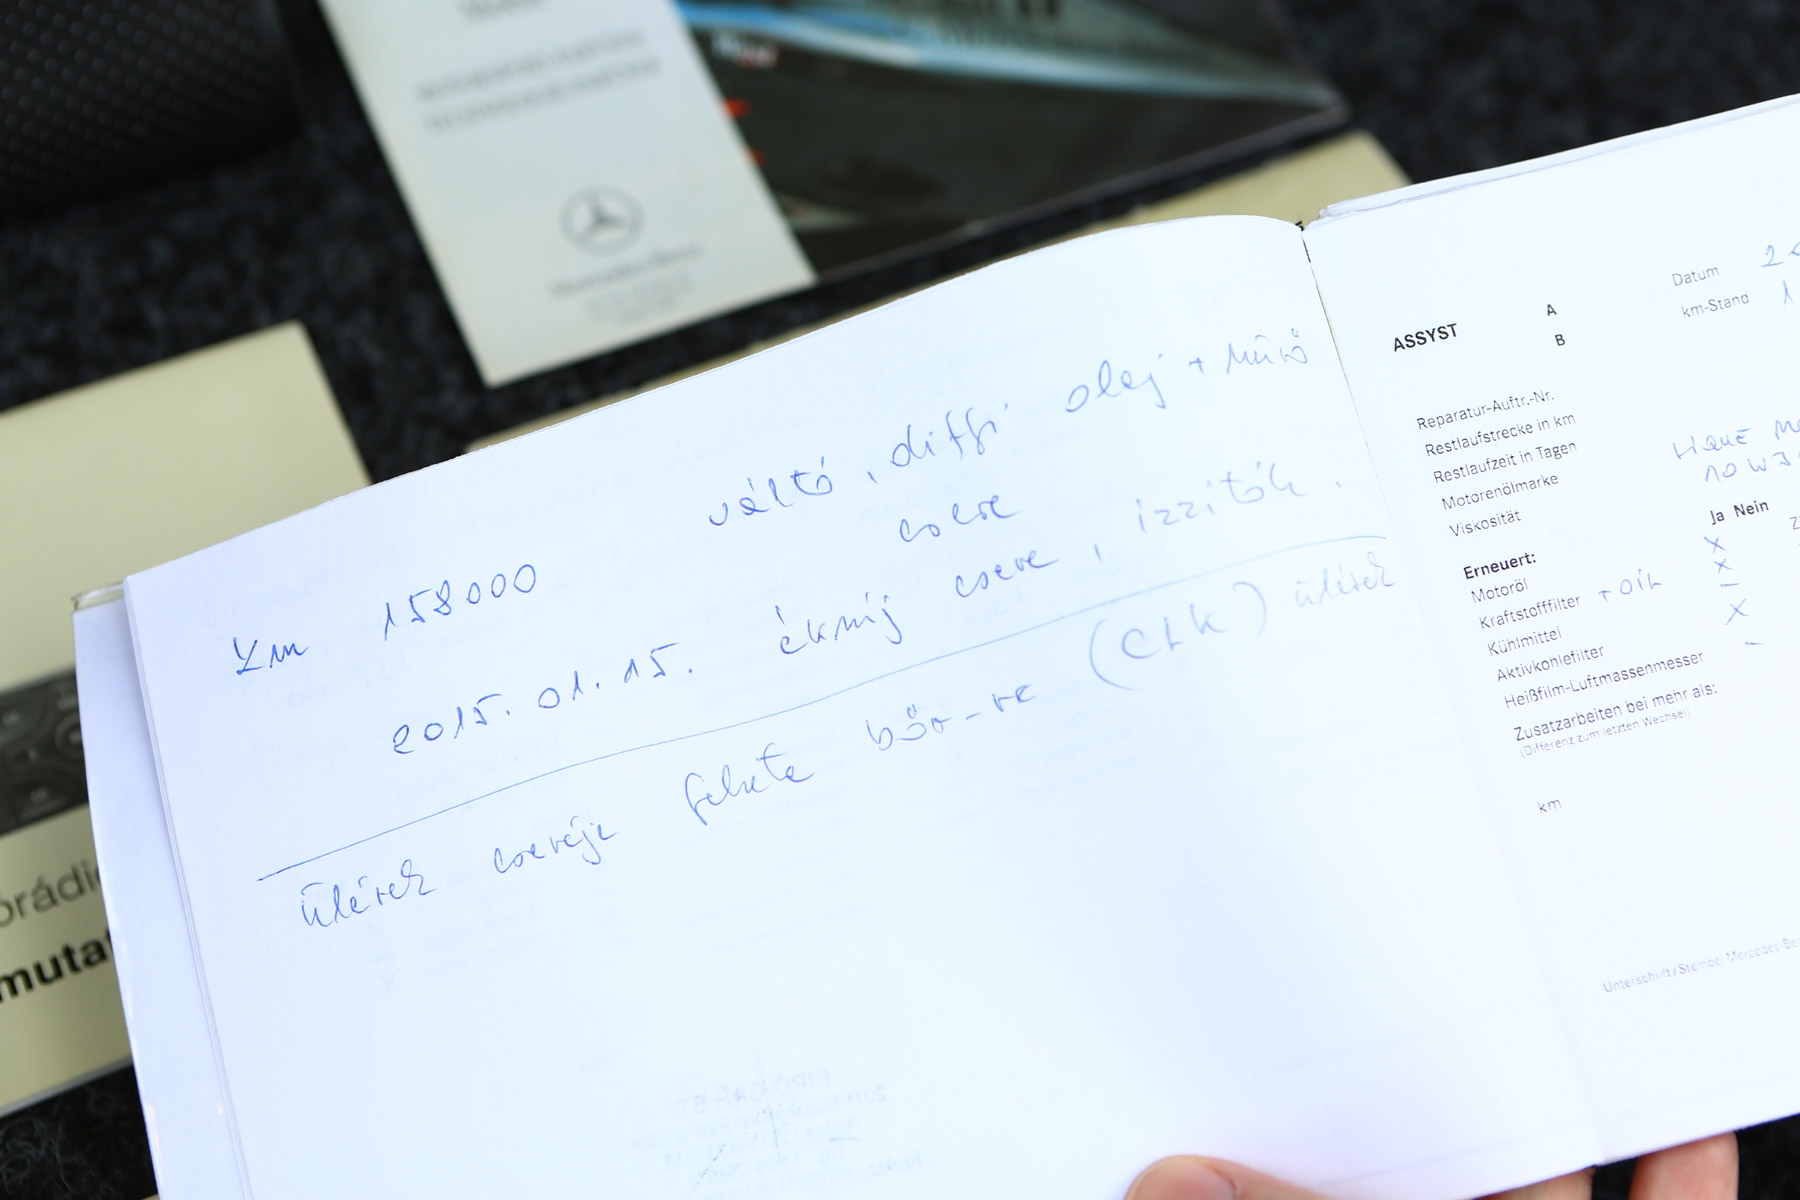 Mercedes-Benz
orádió
mutat
Km 158000 váltó, diffi olej + szűrő
csere
2015.01.15. ékszíj csere, izzítók.
ülések cseréje fekete bőr-re (CLK) ülések
ASSYST A
B
Datum 2
km-Stand 1
Reparatur-Auftr.-Nr.
Restlaufstrecke in km
Restlaufzeit in Tagen
Motorenölmarke
Viskosität 10W
Ja Nein
Erneuert:
Motoröl x
Kraftstofffilter + OIL x
Kühlmittel –
Aktivkohlefilter x
Heißfilm-Luftmassenmesser –
Zusatzarbeiten bei mehr als:
(Differenz zum letzten Wechsel)
km
Unterschrift/Stempel Mercedes-Be